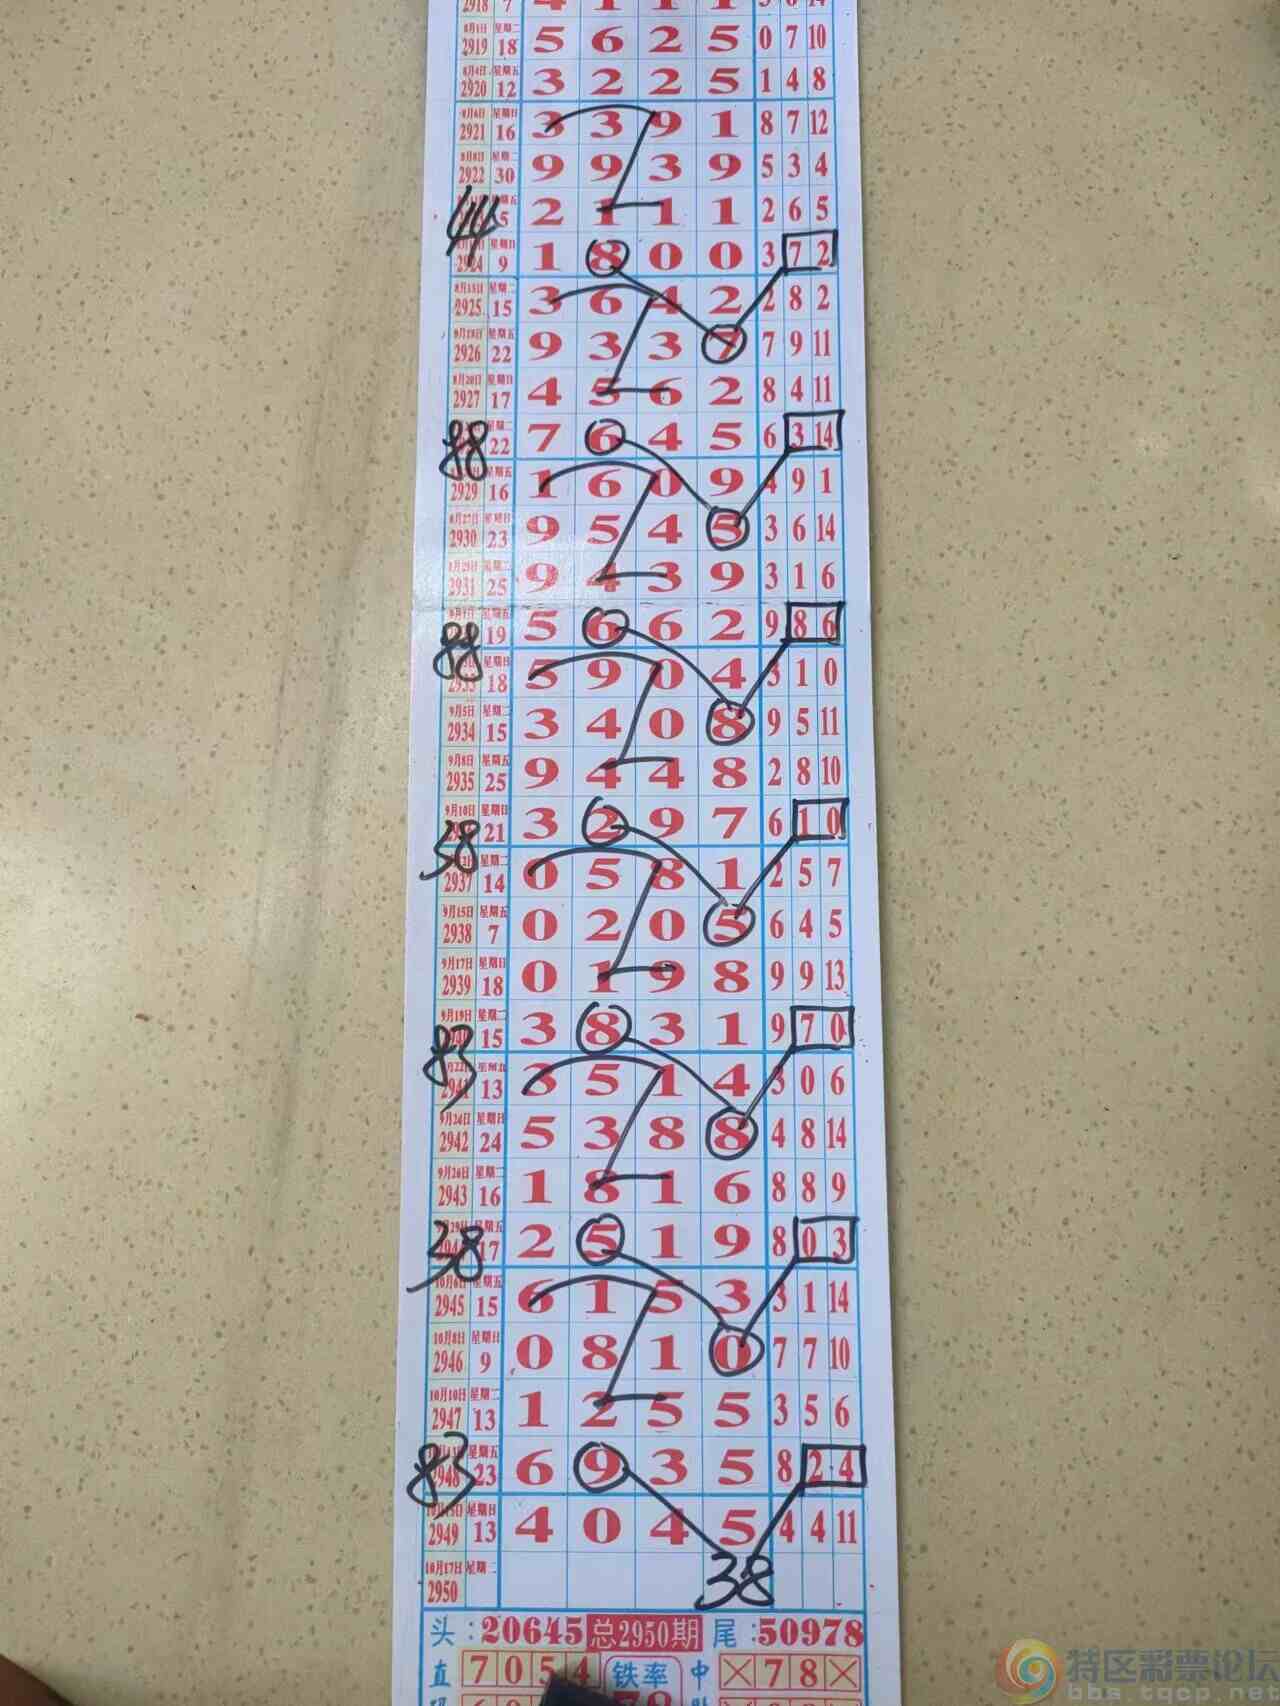 2918 7 4 1 1 1
8月1日 星期二 2919 18 5 6 2 5 0 7 10
8月4日 星期五 2920 12 3 2 2 5 1 4 8
8月6日 星期日 2921 16 3 3 9 1 8 7 12
8月8日 星期二 2922 30 9 9 3 9 5 3 4
44 星期五 5 2 1 1 1 2 6 5
星期日 2924 9 1 8 0 0 3 7 2
8月15日 星期二 2925 15 3 6 4 2 2 8 2
星期五 2926 22 9 3 3 7 7 9 11
8月20日 星期日 2927 17 4 5 6 2 8 4 11
88 星期二 22 7 6 4 5 6 3 14
星期五 2929 16 1 6 0 9 4 9 1
8月27日 星期日 2930 23 9 5 4 5 3 6 14
8月29日 星期二 2931 25 9 4 3 9 3 1 6
9月1日 星期五 19 5 6 6 2 9 8 6
88 星期日 2933 18 5 9 0 4 3 1 0
9月5日 星期二 2934 15 3 4 0 8 9 5 11
9月8日 星期五 2935 25 9 4 4 8 2 8 10
9月10日 星期日 21 3 2 9 7 6 1 0
38 星期二 2937 14 0 5 8 1 2 5 7
9月15日 星期五 2938 7 0 2 0 5 6 4 5
9月17日 星期日 2939 18 0 1 9 8 9 9 13
9月19日 星期二 15 3 8 3 1 9 7 0
83 9月22日 星期五 2941 13 3 5 1 4 3 0 6
9月24日 星期日 2942 24 5 3 8 8 4 8 14
9月26日 星期二 2943 16 1 8 1 6 8 8 9
38 9月29日 星期五 17 2 5 1 9 8 0 3
10月6日 星期五 2945 15 6 1 5 3 3 1 14
10月8日 星期日 2946 9 0 8 1 0 7 7 10
10月10日 星期二 2947 13 1 2 5 5 3 5 6
83 星期五 2948 23 6 9 3 5 8 2 4
10月15日 星期日 2949 13 4 0 4 5 4 4 11
10月17日 星期二 2950 38
头:20645 总2950期 尾:50978
直 7 0 5 4 铁率 中 X 7 8 X
78
特区彩票论坛
bbs.tqcp.net